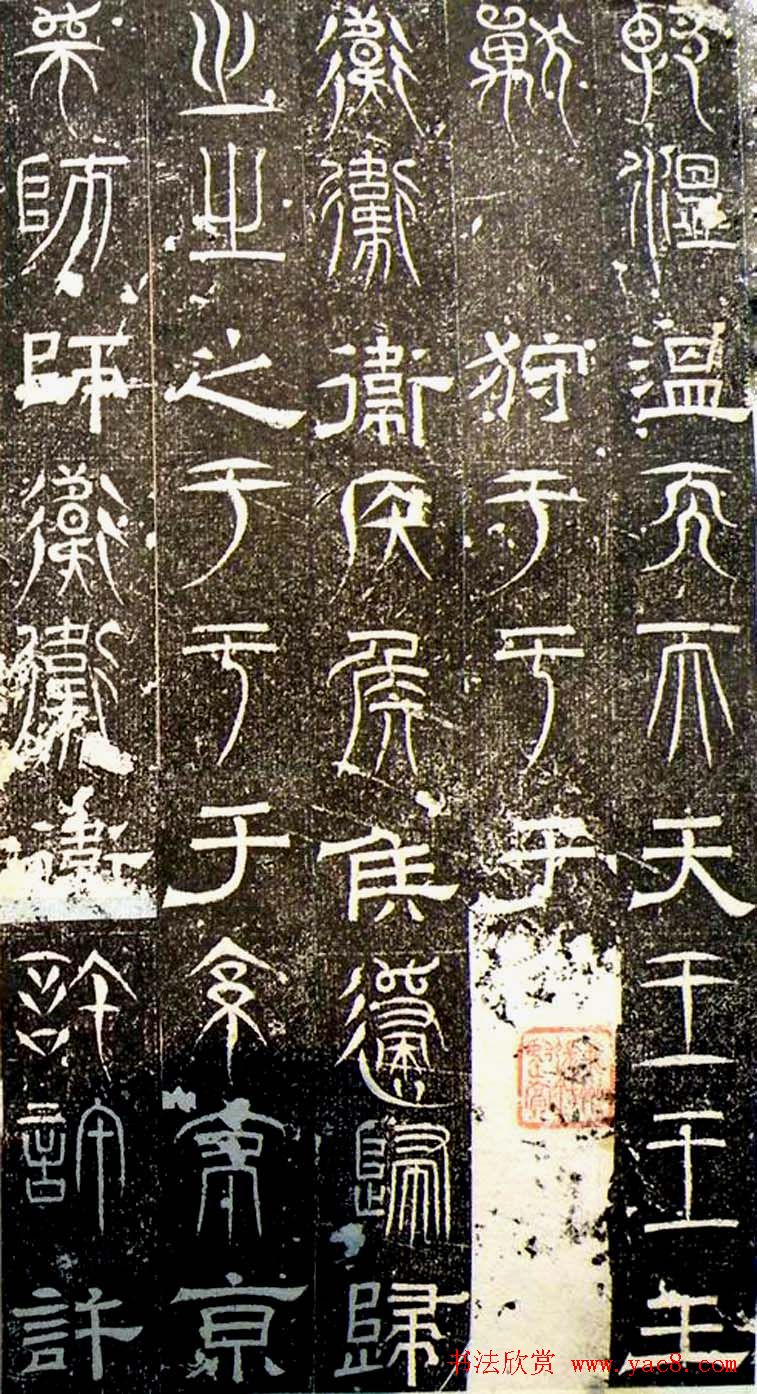 溫溫溫天天天王王王
狩狩于于于
衛衛衛侯侯侯歸歸歸
之之之于于于京京京
師師師衛衛衛許許許
书法欣赏 www.yac8.com